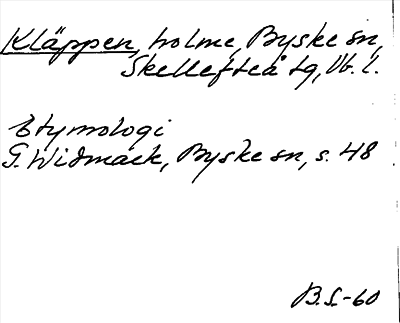 Kläppen, holme, Byske sn,
Skellefteå tg, Vb. l.
Etymologi
G. Widmark, Byske sn, s. 48
B.L-60